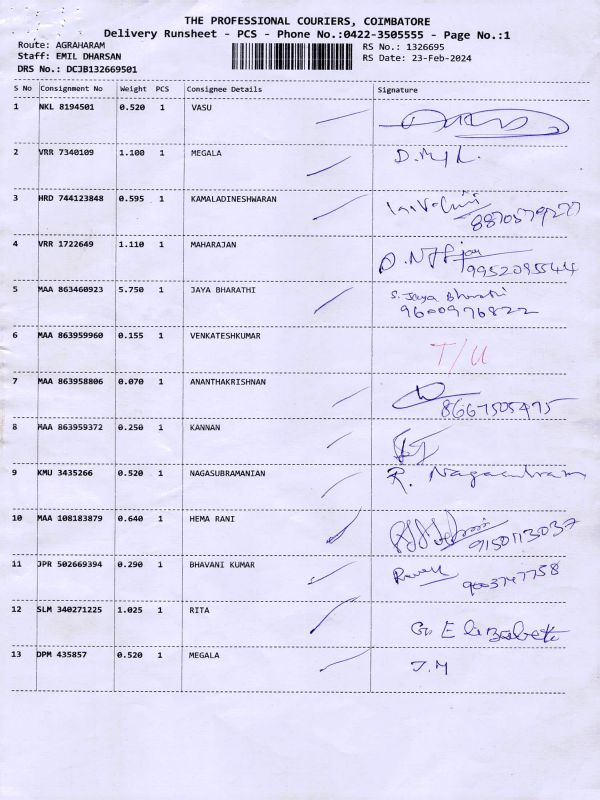 THE PROFESSIONAL COURIERS, COIMBATORE
Delivery Runsheet - PCS - Phone No.:0422-3505555 - Page No.:1
Route: AGRAHARAM RS No.: 1326695
Staff: EMIL DHARSAN RS Date: 23-Feb-2024
DRS No.: DCJB132669501
S No Consignment No Weight PCS Consignee Details Signature
1 NKL 8194501 0.520 1 VASU
2 VRR 7340109 1.100 1 MEGALA
3 HRD 744123848 0.595 1 KAMALADINESHWARAN
4 VRR 1722649 1.110 1 MAHARAJAN
9952095544
5 MAA 863460923 5.750 1 JAYA BHARATHI S. Jaya Bharathi
9600976822
6 MAA 863959960 0.155 1 VENKATESHKUMAR T/U
7 MAA 863958806 0.070 1 ANANTHAKRISHNAN
8667505495
8 MAA 863959372 0.250 1 KANNAN
9 KMU 3435266 0.520 1 NAGASUBRAMANIAN R.
10 MAA 108183879 0.640 1 HEMA RANI
9150113037
11 JPR 502669394 0.290 1 BHAVANI KUMAR
9003747758
12 SLM 340271225 1.025 1 RITA
13 DPM 435857 0.520 1 MEGALA J.M